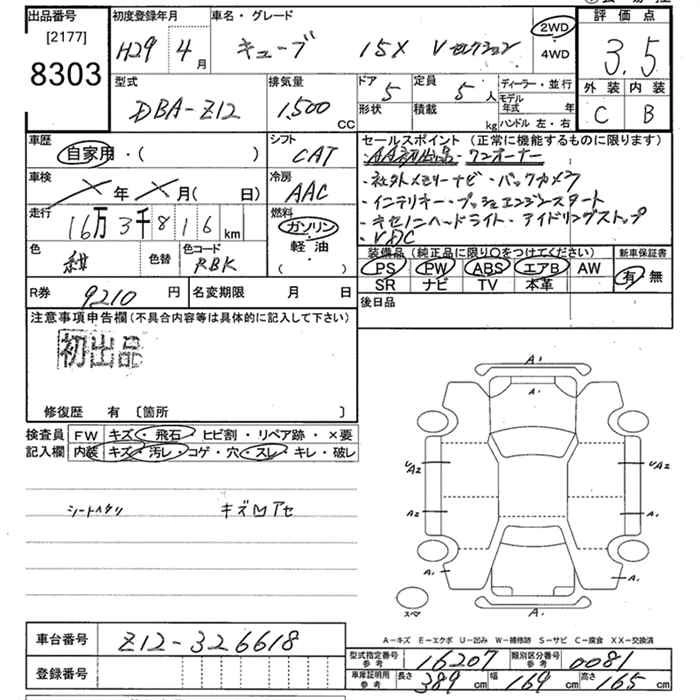 出品番号 初度登録年月 車名・グレード 評価点
[2177]
8303 H29 4月 キューブ 15X Vセレクション 2WD 3.5
4WD
型式 排気量 ドア 定員 ディーラー・並行 外装 内装
DBA-Z12 1,500 cc 5 5人 モデル年式 年 C B
形状 積載 kg ハンドル 左・右
車歴 シフト セールスポイント (正常に機能するものに限ります)
自家用・( ) CAT ・AA初出品・ワンオーナー
車検 冷房 ・社外メモリーナビ・バックカメラ
年 月(日) AAC ・インテリキー・プッシュエンジンスタート
走行 燃料 ・キセノンヘッドライト・アイドリングストップ
16万3千816km ガソリン・軽油・( ) ・VDC
色 色替 色コード 装備品 (純正品に限り○をつけてください) 新車保証書
紺 RBK PS PW ABS エアB AW 有・無
SR ナビ TV 本革
R券 9210円 名変期限 月 日 後日品
注意事項申告欄(不具合内容等は具体的に記入して下さい)
初出品
修復歴 有 〔箇所 〕
検査員 FW キズ・飛石・ヒビ割・リペア跡・×要
記入欄 内装 キズ・汚レ・コゲ・穴・スレ・キレ・破レ
シートヘタリ
A1
A1
UA2 UA2
A2 A1
A1 A1
スペア A1
A-キズ E-エクボ U-凹み W-補修跡 S-サビ C-腐食 XX-交換済
車台番号 Z12-326618
型式指定番号 参考 16207 類別区分番号 参考 0081
登録番号
車庫証明用 参考 長さ 389cm 幅 169cm 高さ 165cm